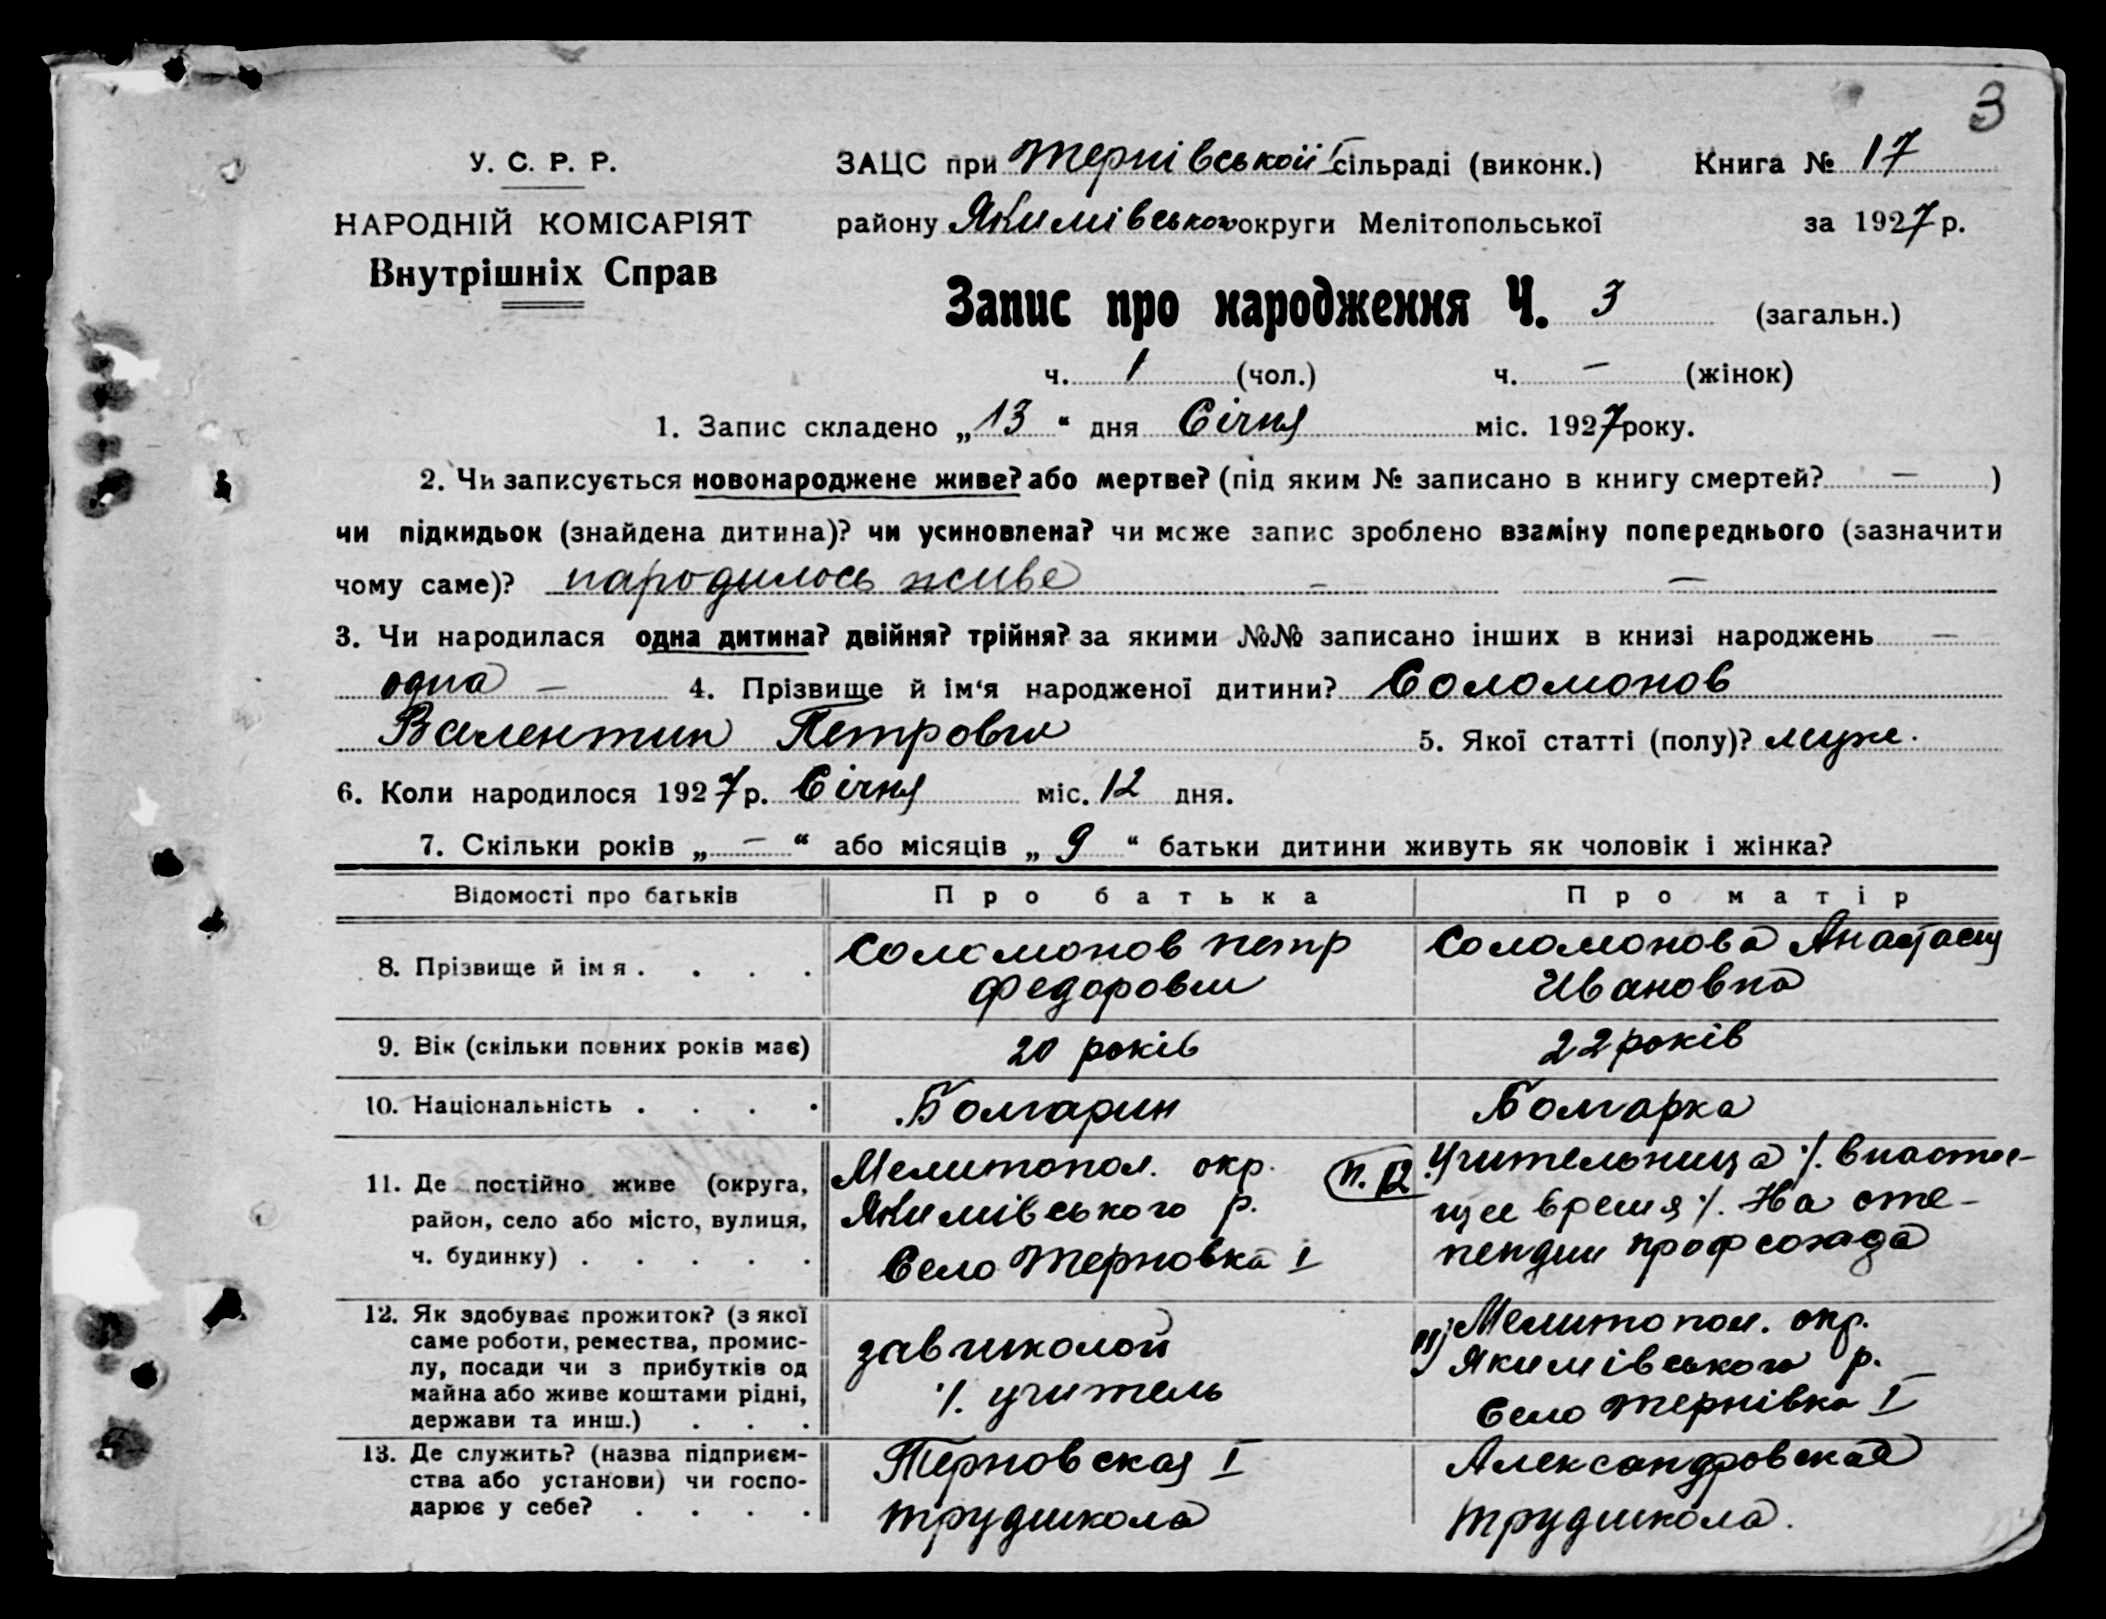 3
У. С. Р. Р.
НАРОДНІЙ КОМІСАРІЯТ
Внутрішніх Справ
ЗАЦС при Тернівськоїї I сільраді (виконк.) Книга № 17
району Якимівського округи Мелітопольської за 1927 р.
Запис про народження Ч. 3 (загальн.)
ч. 1 (чол.) ч. — (жінок)
1. Запис складено „13“ дня Січня міс. 1927 року.
2. Чи записується новонароджене живе? або мертве? (під яким № записано в книгу смертей? — )
чи підкидьок (знайдена дитина)? чи усиновлена? чи може запис зроблено взаміну попереднього (зазначити
чому саме)? народилось живе — —
3. Чи народилася одна дитина? двійня? трійня? за якими №№ записано інших в книзі народжень —
одна — 4. Прізвище й ім‘я народженої дитини? Соломонов
Валентин Петрович 5. Якої статті (полу)? муж.
6. Коли народилося 1927 р. Січня міс. 12 дня.
7. Скільки років „—“ або місяців „9“ батьки дитини живуть як чоловік і жінка?
Відомості про батьків Про батька Про матір
8. Прізвище й імя . . . . Соломонов Петр Соломонова Анастасия
Федорович Ивановна
9. Вік (скільки повних років має) 20 років 22 років
10. Національність . . . . Болгарин Болгарка
11. Де постійно живе (округа, Мелитопол. окр. п. 12 Учительница ·/. в настоя-
район, село або місто, вулиця, Якимівського р. щее время ·/. На сти-
ч. будинку) . . . . . Село Терновка I пендии профсоюза
12. Як здобуває прожиток? (з якої 11) Мелитопол. окр.
саме роботи, ремества, промис- завшколой Якимівського р.
лу, посади чи з прибутків од ·/. учитель Село Тернівка I
майна або живе коштами рідні,
держави та инш.) . . .
13. Де служить? (назва підприєм- Терновская I Александровская
ства або установи) чи госпо- трудшкола трудшкола.
дарює у себе? . . . .